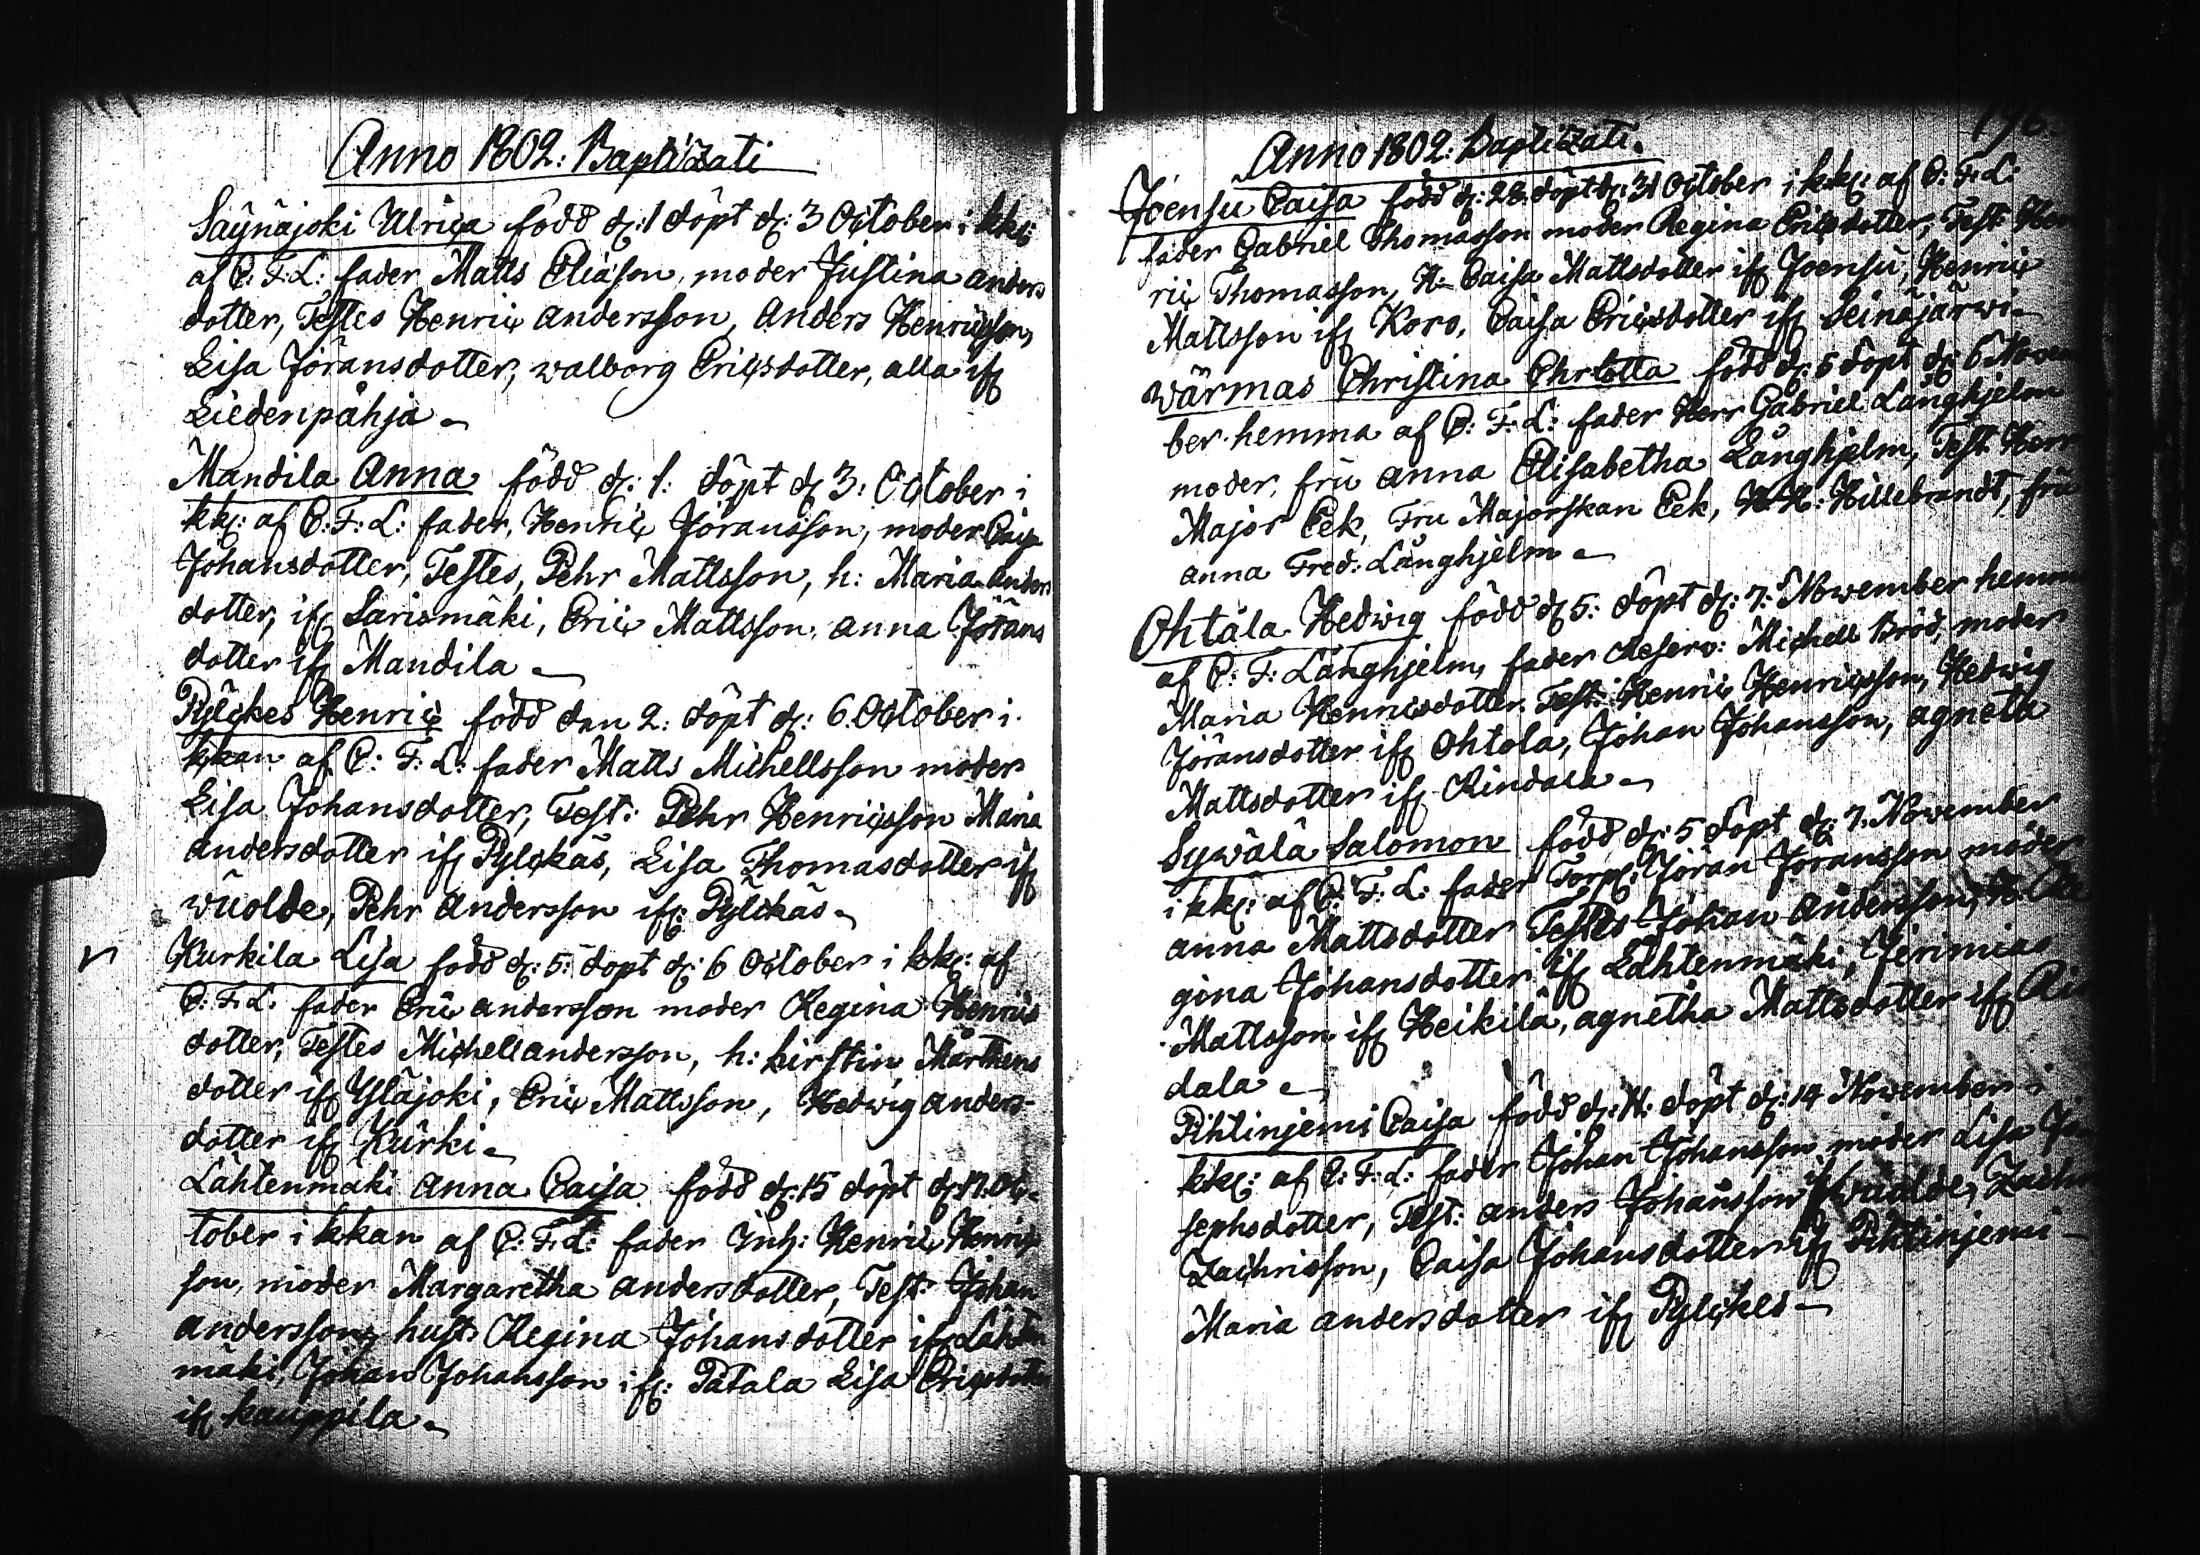 Anno 1802: Baptizati
Säynäjoki Ulrica född d: 1 döpt d: 3 October i kk:
af C: F: L: fader Matts Eliäson, moder Justina anders
dotter, Testes Henric andersson, Anders Henricsson,
Lisa Jöransdotter, walborg Ericsdotter, alla ifr
Liedenpåhja
Mandila Anna född d: 1: döpt d 3: October i
kk: af C: F: L: fader, Henric Jöransson, moder Caisa
Johansdotter, Testes, Pehr Mattsson, h: Maria anders
dotter, ifr Sarismäki, Eric Mattsson, anna Jörans
dotter ifr Mandila
Pylckes Henric född den 2: döpt d: 6. October i
kkan af C: F: L: fader Matts Michellsson moder
Lisa Johansdotter, Test: Pehr Henricsson Maria
andersdotter ifr Pylckäs, Lisa Thomasdotter ifr
wuolde, Pehr andersson ifr: Pylckäs
Kurkila Lisa född d: 5: döpt d: 6 October i kk: af
C: F: L: fader Eric andersson moder Regina Henrics
dotter, Testes Michell andersson, h: kirstin Mårthens
dotter ifr Yläjoki, Eric Mattsson, Hedwig anders-
dotter ifr Kurki
Lähtenmäki anna Caisa född d: 15 döpt d: 17. Oc-
tober i kkan af C: F: L: fader Inh: Henric Henrics
son, moder Margaretha andersdotter, Test: Johan
andersson, hust: Regina Johansdotter ifr Lähten
mäki, Johan Johansson ifr: Patala Lisa Ericsdotter
ifr kauppila
196.
Anno 1802: Baptizati
Joensu Caisa född d: 28. döpt d: 31 October i kk: af C: F: L:
fader Gabriel Thomasson moder Regina Ericsdotter, Test: Hen
ric Thomasson, H: Caisa Mattsdotter ifr Joensu, Henric
Mattsson ifr Koro, Caisa Ericsdotter ifr Seinäjärwi
wärmas Christina Chrlotta född d: 5 döpt d: 6 Novem
ber hemma af C: F: L: fader Herr Gabriel Långhjelm
moder, fru anna Elisabetha Långhjelm, Test: Herr
Major Eek, Fru Majorskan Eek, H: H: Hillebrandt, fru
anna Fred: Långhjelm
Ohtala Hedwig född d 5: döpt d: 7: November hemma
af C: F: Långhjelm, fader Reserv: Michell Bröd, moder
Maria Henricsdotter Test: Henric Henricsson, Hedwig
Jöransdotter ifr Ohtola, Johan Johansson, agneta
Mattsdotter ifr Rindala
Sywälä Salomon född d: 5 döpt d: 7. November
i kk: af C: F: L: fader Torp: Jöran Jöransson moder
anna Mattsdotter Testes Johan andersson, H: Re
gina Johansdotter ifr Lähtenmäki, Jerimias
Mattsson ifr Heikilä, agnetha Mattsdotter ifr Rin
dala
Pihlinjemi Caisa född d: 11: döpt d: 14 November i
kk: af C: F: L: fader Johan Johansson moder Lisa Jo
sephsdotter, Test: anders Johansson ifr wuolde, Zachr
Zachrisson, Caisa Johansdotter ifr Pihlinjemi
Maria andersdotter ifr Pylckes